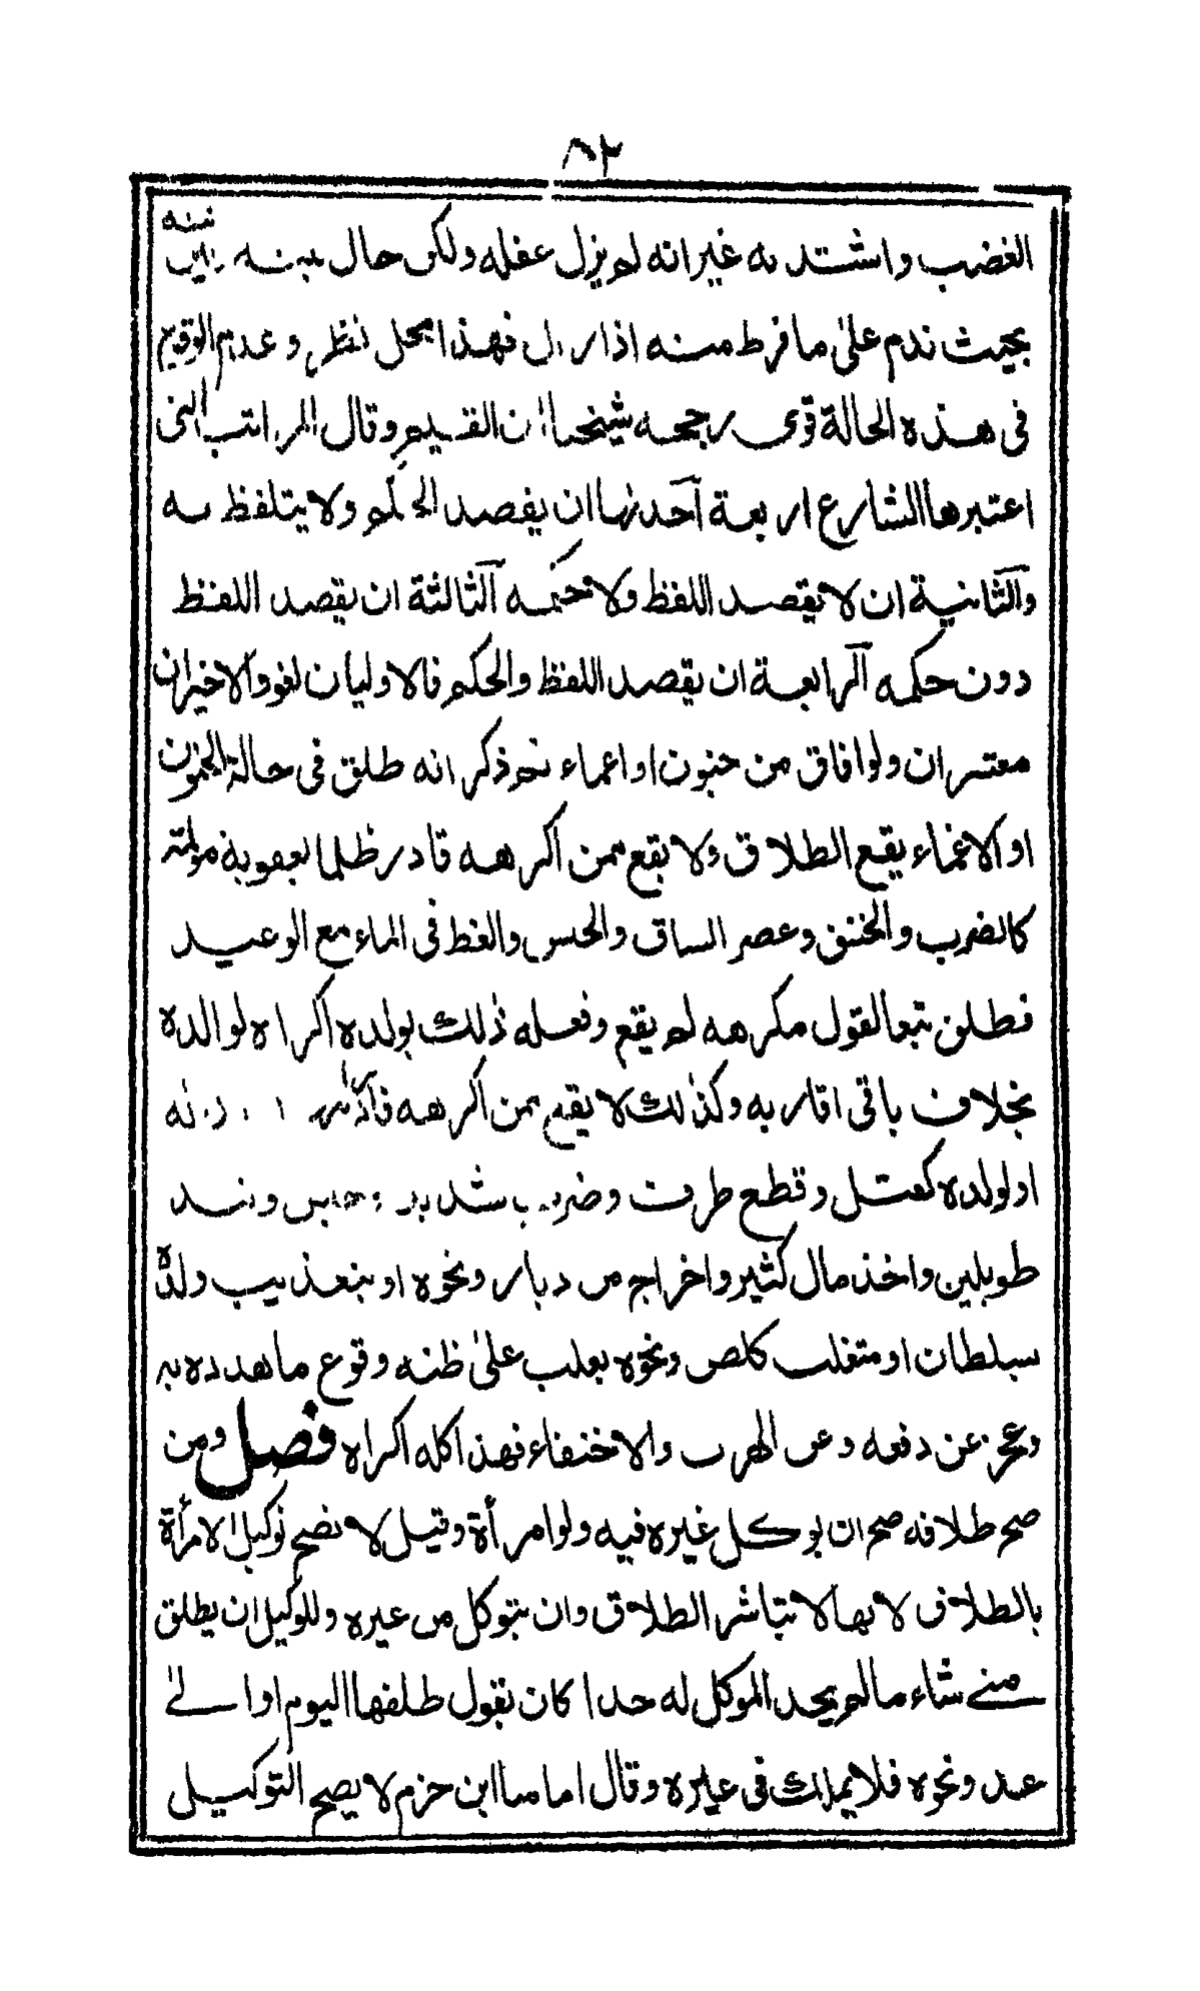 ٨٣
الغضب واشتد به غير انه لم يزل عقله ولكن حال بينه وبين نيته
بحيث ندم على ما فرط منه اذا زال فهذا محل نظر وعدم الوقوع
فى هذه الحالة قوى رجحه شيخنا ابن القيم وقال المراتب التى
اعتبرها الشارع اربعة آحدنها ان يقصد الحكم ولا يتلفظ به
والثانية ان لا يقصد اللفظ ولا حكمه آلثالثة ان يقصد اللفظ
دون حكمه آلرابعة ان يقصد اللفظ والحكم فالاوليان لغو والاخيران
معتبران ولو افاق من جنون او اغماء ثم ذكر انه طلق فى حالة الجنون
او الاغماء يقع الطلاق ولا يقع ممن اكرهه قادر ظلما بعقوبة مؤلمة
كالضرب والخنق وعصر الساق والحبس والغط فى الماء مع الوعيد
فطلق تبعا لقول مكرهه لم يقع وفعله ذلك بولده اكراه لوالده
بخلاف باقى اقاربه وكذلك لا يقع ممن اكرهه
او لولده كقتل وقطع طرف وضرب شديد وحبس وقيد
طويلين واخذ مال كثير واخراج من ديار ونحوه او بتعذيب ولده
سلطان او متغلب كلص ونحوه يغلب على ظنه وقوع ما هدده به
وعجز عن دفعه وعن الهرب والاختفاء فهذا كله اكراه فصل ومن
صح طلاقه صح ان يوكل غيره فيه ولو امرأة وقيل لا يصح توكيل الامرأة
بالطلاق لانها لا تباشر الطلاق وان يتوكل من غيره وللوكيل ان يطلق
متى شاء ما لم يحد الموكل له حدا كان يقول طلقها اليوم او الى
غد ونحوه فلا يملك فى غيره وقال امامنا ابن حزم لا يصح التوكيل